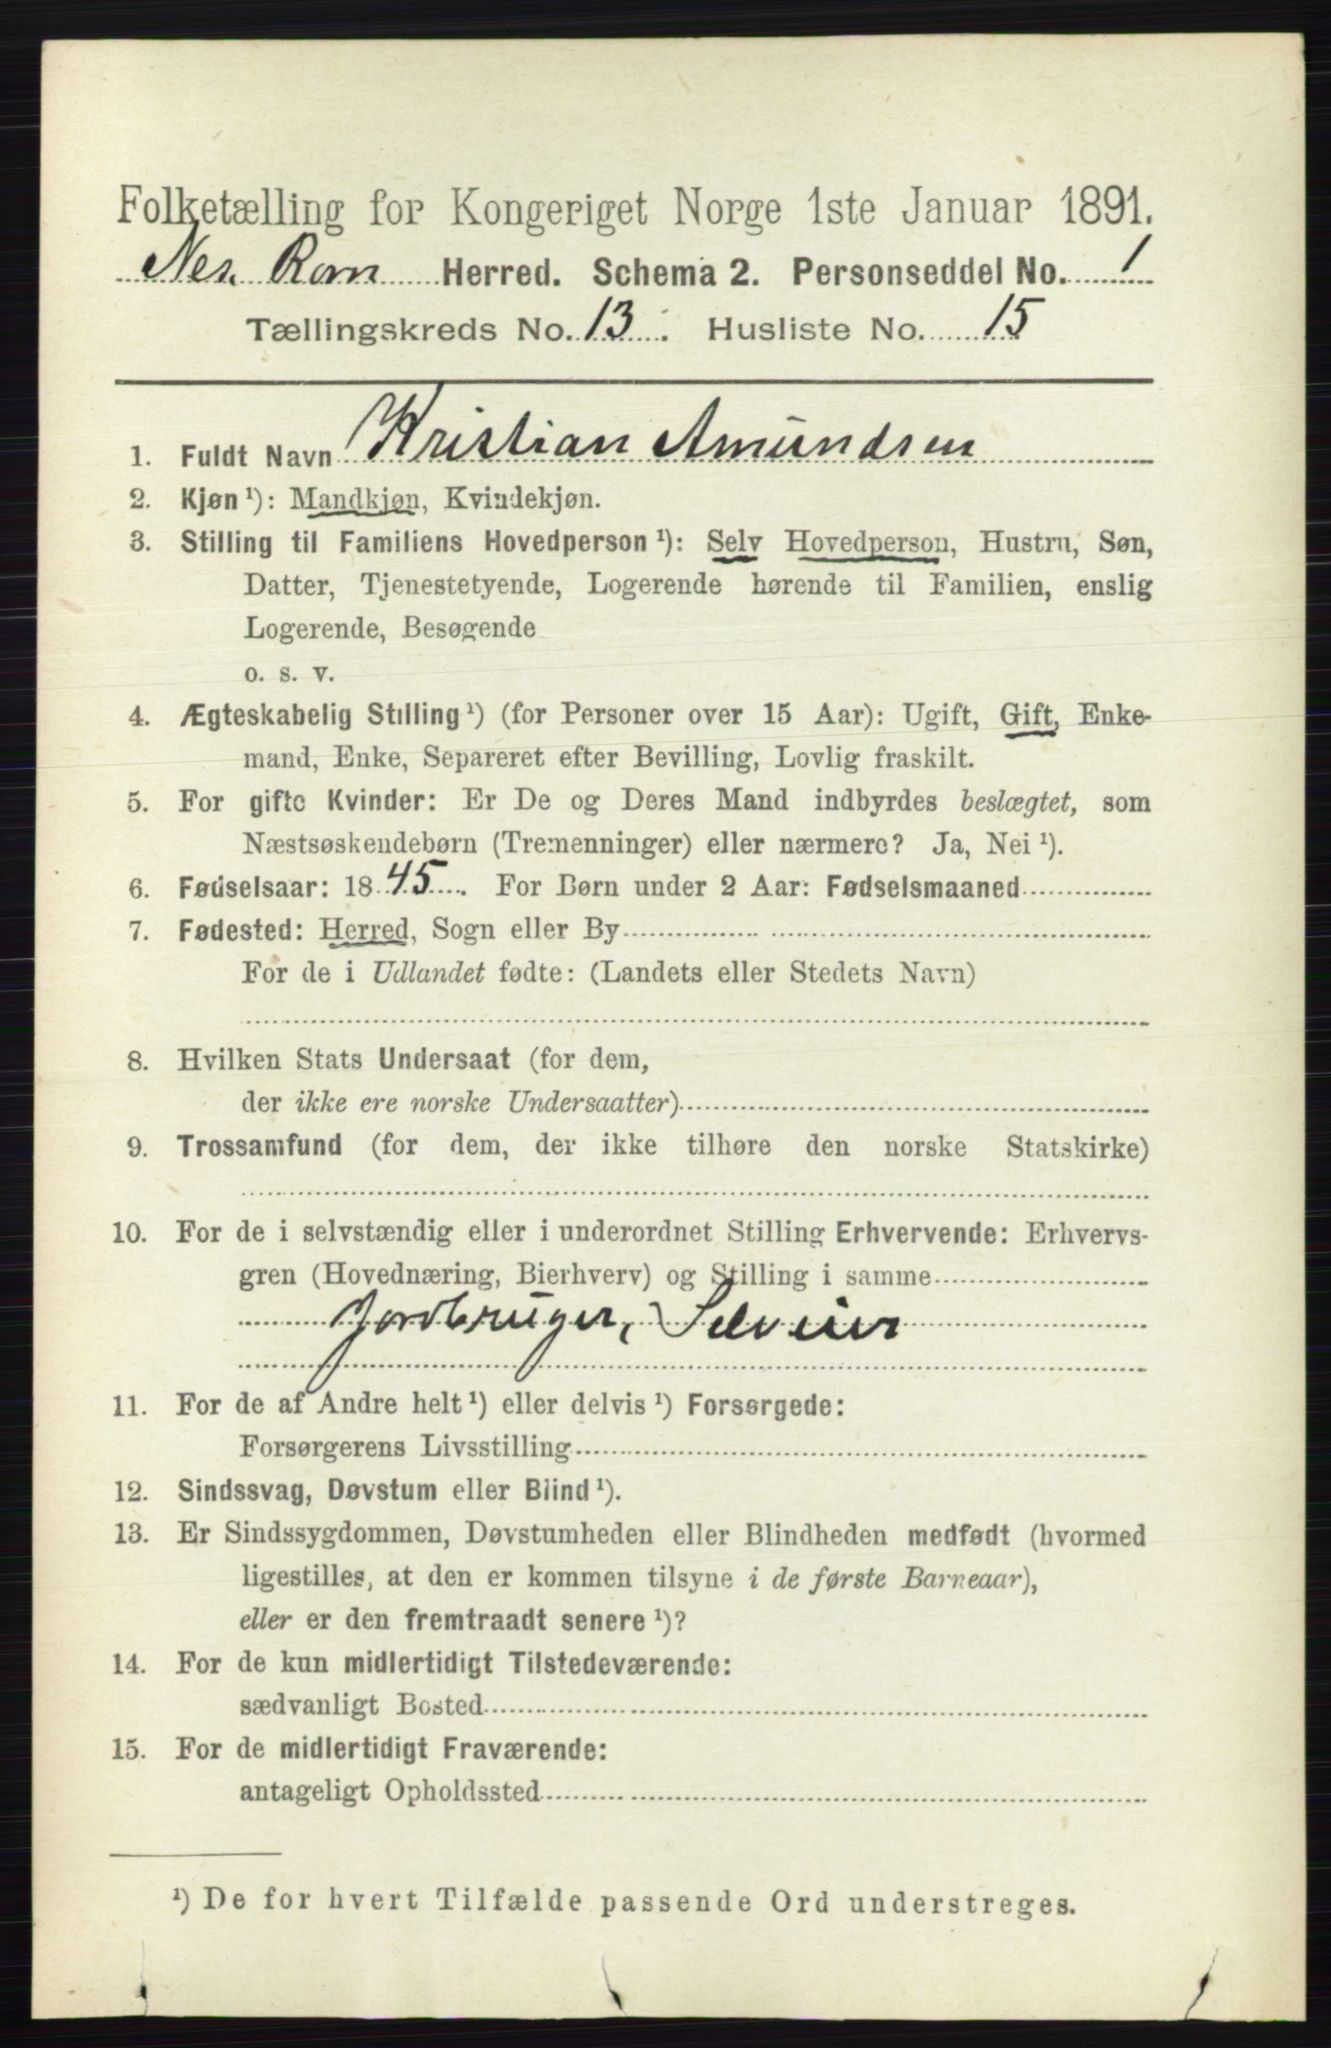 Folketælling for Kongeriget Norge 1ste Januar 1891.
Nes. Rom Herred. Schema 2. Personseddel No. 1
Tællingskreds No. 13. Husliste No. 15
1. Fuldt Navn Kristian Amundsen
2. Kjøn ¹): Mandkjøn, Kvindekjøn.
3. Stilling til Familiens Hovedperson ¹): Selv Hovedperson, Hustru, Søn,
Datter, Tjenestetyende, Logerende hørende til Familien, enslig
Logerende, Besøgende
o. s. v.
4. Ægteskabelig Stilling ¹) (for Personer over 15 Aar): Ugift, Gift, Enke-
mand, Enke, Separeret efter Bevilling, Lovlig fraskilt.
5. For gifte Kvinder: Er De og Deres Mand indbyrdes beslægtet, som
Næstsøskendebørn (Tremenninger) eller nærmere? Ja, Nei ¹).
6. Fødselsaar: 1845. For Børn under 2 Aar: Fødselsmaaned
7. Fødested: Herred, Sogn eller By
For de i Udlandet fødte: (Landets eller Stedets Navn)
8. Hvilken Stats Undersaat (for dem,
der ikke ere norske Undersaatter)
9. Trossamfund (for dem, der ikke tilhøre den norske Statskirke)
10. For de i selvstændig eller i underordnet Stilling Erhvervende: Erhvervs-
gren (Hovednæring, Bierhverv) og Stilling i samme
Jordbruger, Selveier
11. For de af Andre helt ¹) eller delvis ¹) Forsørgede:
Forsørgerens Livsstilling
12. Sindssvag, Døvstum eller Blind ¹).
13. Er Sindssygdommen, Døvstumheden eller Blindheden medfødt (hvormed
ligestilles, at den er kommen tilsyne i de første Barneaar),
eller er den fremtraadt senere ¹)?
14. For de kun midlertidigt Tilstedeværende:
sædvanligt Bosted
15. For de midlertidigt Fraværende:
antageligt Opholdssted
¹) De for hvert Tilfælde passende Ord understreges.